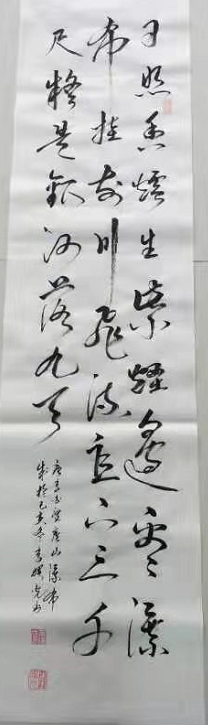 日照香爐生紫煙遥看瀑
布挂前川飛流直下三千
尺疑是銀河落九天
唐李白望庐山瀑布
己亥冬李